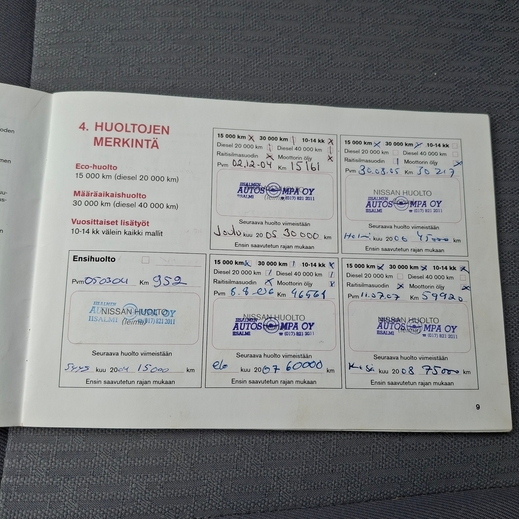 4. HUOLTOJEN
MERKINTÄ
Eco-huolto
15 000 km (diesel 20 000 km)
Määräaikaishuolto
30 000 km (diesel 40 000 km)
Vuosittaiset lisätyöt
10-14 kk välein kaikki mallit
15 000 km x 30 000 km 10-14 kk x
Diesel 20 000 km Diesel 40 000 km
Raitisilmasuodin x Moottorin öljy x
Pvm 02.12-04 Km 15161
IISALMEN
AUTOS MPA OY
IISALMI (017) 821 2011
Seuraava huolto viimeistään
Joulu kuu 2005 30000 km
Ensin saavutetun rajan mukaan
15 000 km x 30 000 km x 10-14 kk
Diesel 20 000 km Diesel 40 000 km
Raitisilmasuodin Moottorin öljy x
Pvm 30.08.05 Km 30217
NISSAN HUOLTO
IISALMEN
AUTOS MPA OY
IISALMI (017) 821 2011
Seuraava huolto viimeistään
kuu 2006 45000 km
Ensin saavutetun rajan mukaan
Ensihuolto
Pvm 050304 Km 952
NISSAN HUOLTO
(leima)
IISALMI (017) 821 2011
Seuraava huolto viimeistään
Syys kuu 2004 15000 km
Ensin saavutetun rajan mukaan
15 000 km x 30 000 km 10-14 kk x
Diesel 20 000 km Diesel 40 000 km
Raitisilmasuodin Moottorin öljy x
Pvm 8.8.06 Km 46561
NISSAN HUOLTO
IISALMEN
AUTOS MPA OY
IISALMI (leima) (017) 821 2011
Seuraava huolto viimeistään
elo kuu 2007 60000 km
Ensin saavutetun rajan mukaan
15 000 km x 30 000 km x 10-14 kk x
Diesel 20 000 km Diesel 40 000 km
Raitisilmasuodin x Moottorin öljy x
Pvm Km 59920
NISSAN HUOLTO
IISALMEN
AUTOS MPA OY
IISALMI (leima) (017) 821 2011
Seuraava huolto viimeistään
kuu 2008 75000 km
Ensin saavutetun rajan mukaan
9